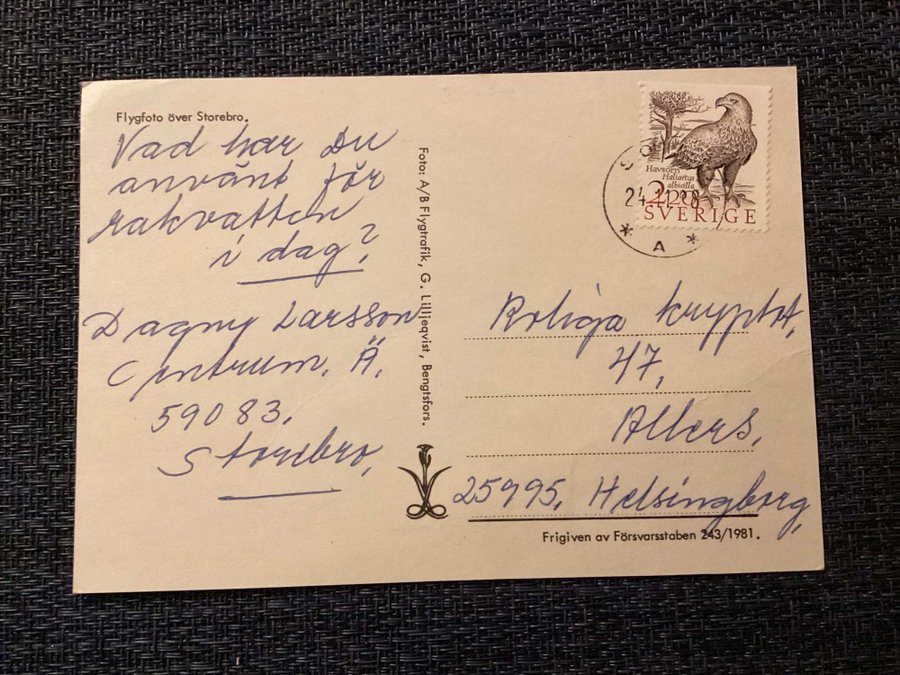 Flygfoto över Storebro.
Vad har Du
använt för
rakvatten
i dag?
Dagny Larsson
Centrum, Ä,
59083.
Storebro,
Foto: A/B Flygtrafik, G. Lilljeqvist, Bengtsfors.
Havsörn
Haliaetus
albicilla
2.20
SVERIGE
24.11.88
* A *
Roliga kryptot,
47,
Allers,
25995, Helsingborg,
Frigiven av Försvarsstaben 243/1981.